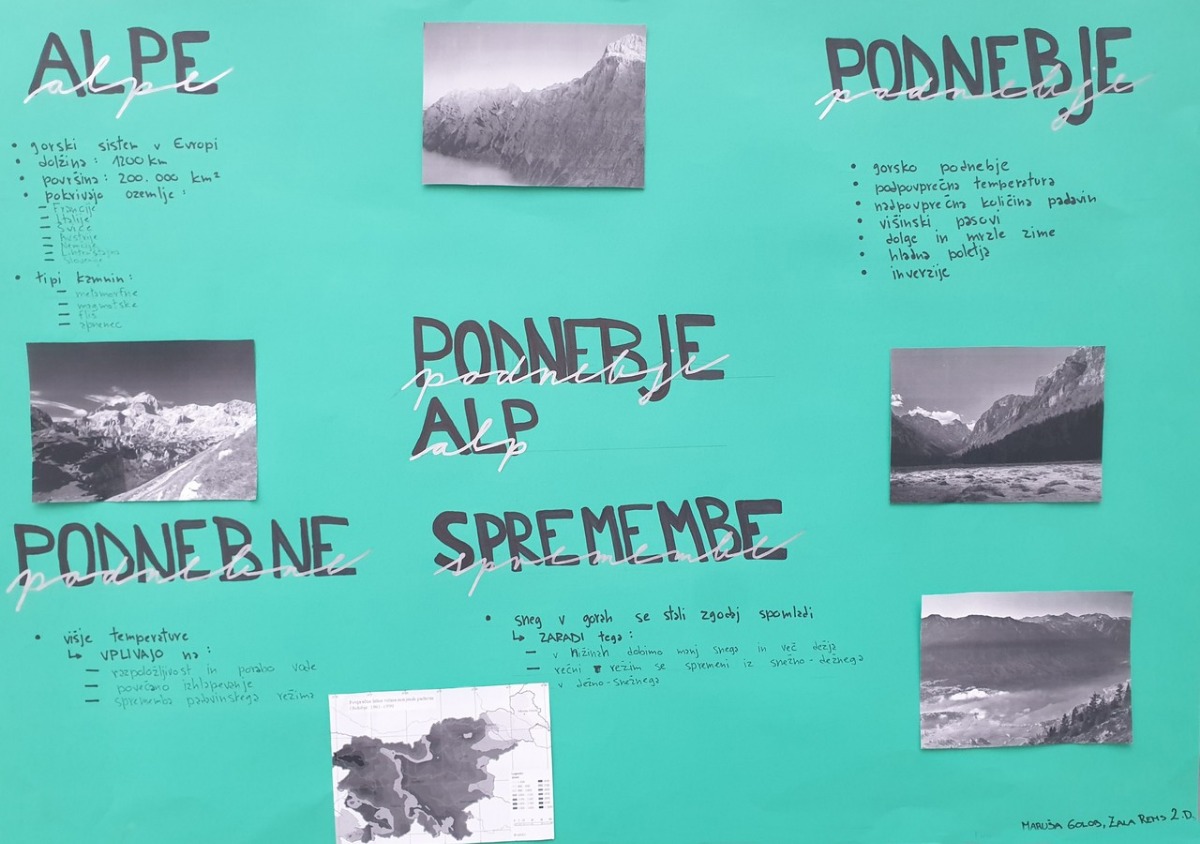 ALPE
alpe
• gorski sistem v Evropi
• dolžina: 1200 km
• površina: 200.000 km²
• pokrivajo ozemlje:
– Francije
– Italije
– Švice
– Avstrije
– Nemčije
– Lihtenštajna
– Slovenije
• tipi kamnin:
– metamorfne
– magmatske
– fliš
– apnenec
PODNEBJE
podnebje
• gorsko podnebje
• podpovprečna temperatura
• nadpovprečna količina padavin
• višinski pasovi
• dolge in mrzle zime
• hladna poletja
• inverzije
PODNEBJE
podnebje
ALP
alp
PODNEBNE
podnebne
• višje temperature
↳ VPLIVAJO na:
– razpoložljivost in porabo vode
– povečano izhlapevanje
– sprememba padavinskega režima
SPREMEMBE
spremembe
• sneg v gorah se stali zgodaj spomladi
↳ ZARADI tega:
– v nižinah dobimo manj snega in več dežja
– rečni režim se spremeni iz snežno-dežnega
v dežno-snežnega
MARUŠA GOLOB, ZALA REMS 2.D